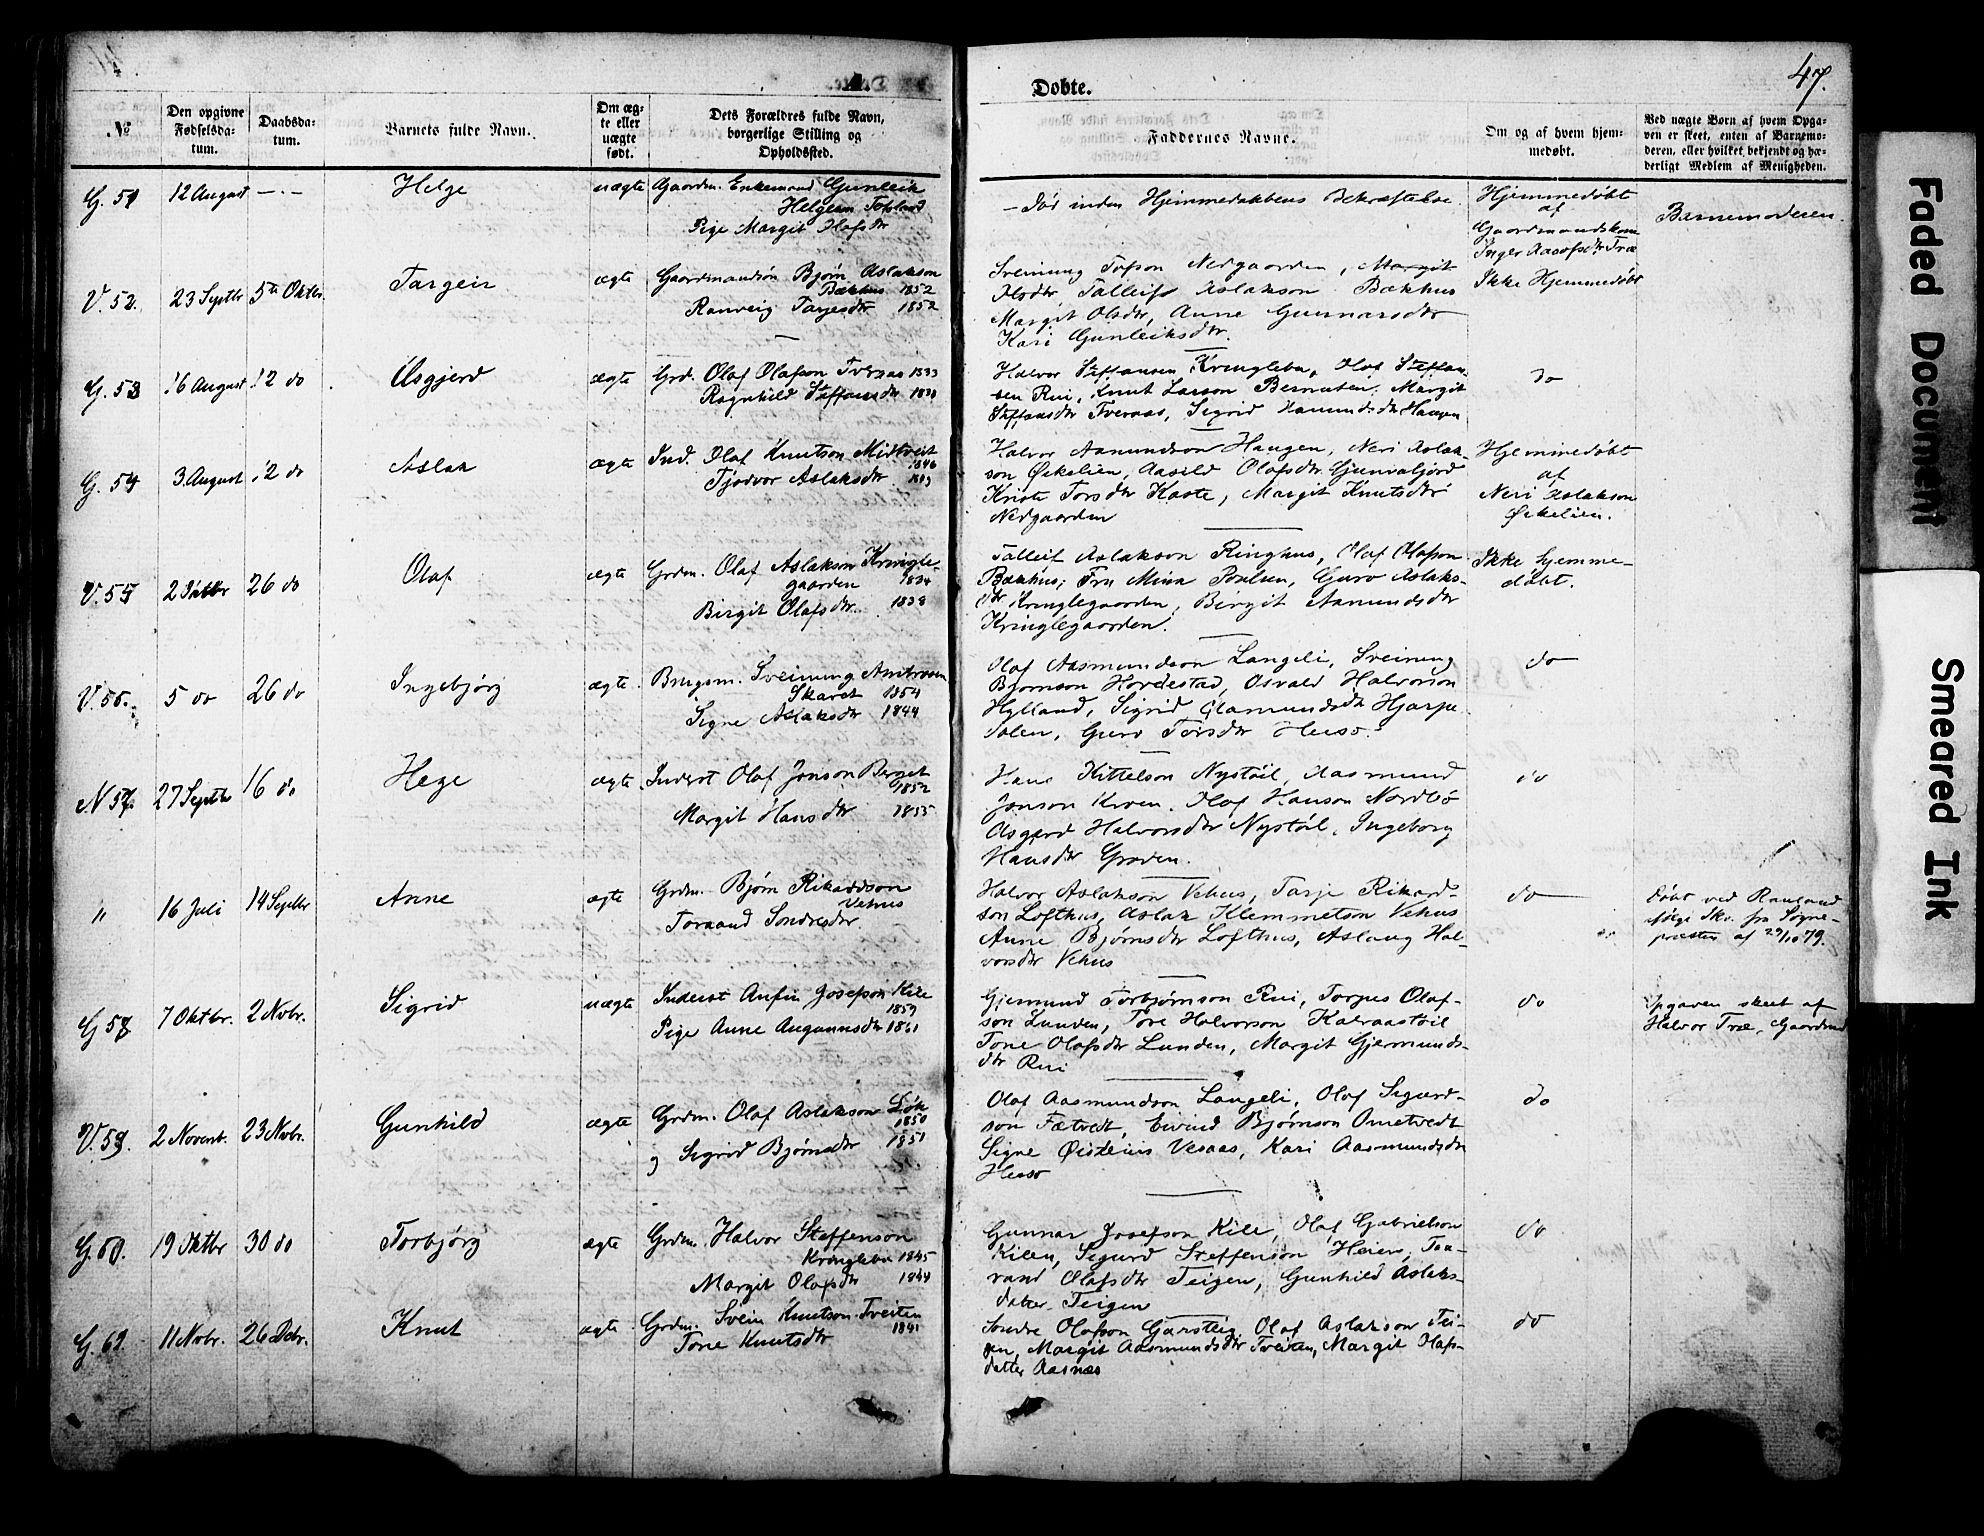 Døbte.
47.
№
Den opgivne Fødselsda-tum.
Daabsda-tum.
Barnets fulde Navn.
Om æg-te eller uægte født.
Dets Forældres fulde Navn, borgerlige Stilling og Opholdssted.
Faddernes Navne.
Om og af hvem hjem-medøbt.
Ved uægte Børn af hvem Opga-ven er skeet, enten af Barnemo-deren, eller hvilket bekjendt og hæ-derligt Medlem af Menigheden.
G. 51 12 August —.— Helge uægte Gaardm. Enkemand Gunleik
Helgesen
Pige Margit Olafsdtr
Død inden Hjemmedaabens Bekræftelse.
Hjemmedøbt
af
Gaardmandskone
Inger
Barnemoderen.
V. 52. 23 Septbr 5te Oktbr. Targeir ægte Gaardmandsøn Bjørn Aslakson
Bækhus 1852
Ranveig Tarjesdtr 1852
Sveinung Nedgaarden, Margit
Olsdtr, Talleif Aslakson Bækhus
Margit Olsdtr, Anne Gunnarsdtr
Kari Gunleiksdtr.
Ikke Hjemmedøbt
G. 53 16 August 12 do Asgjerd ægte Grd. Olav Olafson Tveraas 1833
Ragnhild Steffansdtr
Halvor Steffansen Kringlebu, Olaf Steffan-
sen Rui, Knut Larson Bernutsen, Margit
Steffansdtr Tveraas, Sigrid Hamundsdtr Haugen
do
G. 54 3 August 12 do Aslak ægte Ind. Olaf Knutson Midtveit
1846
Tjodvor Aslaksdtr
Halvor Aamundson Haugen, Neri Aslak-
son Økelien, Aasild Olafsdtr Gjuvaljord
Kriste Torsdtr Kaste, Margit Knutsdtr
Nedgaarden
Hjemmedøbt
af
Neri Aslakson
Økelien.
V. 55 2 Oktbr 26 do Olaf ægte Grdm. Olaf Aslakson Kringle-
gaarden 1834
Birgit Olafsdtr. 1838
Talleif Aslakson Ringhus, Olaf Olafson
Bækhus, Fru Mina Poulsen, Guro Aslaks-
dtr Kringlegaarden, Birgit Aamundsdtr
Kringlegaarden.
Ikke hjemme-
døbt.
V. 56. 5 do 26 do Ingebjørg ægte. Brugsm. Sveinung
Skaret 1854
Signe Aslaksdtr 1844
Olaf Aasmundson Langeli, Sveinung
Bjørnson Hordestad, Osvald Halvorson
Hylland, Sigrid
Guro Torsdtr
do
N 57. 27 Septbr 16 do Hege ægte Inderst Olaf Jonson Berget
1852
Margit Hansdtr 1855
Hans Kittelson Nystøil, Aasmund
Jonson Kroen. Olaf Hanson Nordbø
Asgjerd Halvorsdtr Nystøil, Ingeborg
Hansdtr Groven.
do
" 16 Juli 14 Septbr Anne ægte Grdm. Bjørn Rikardson
Vehus
Toraand Sondresdtr.
Halvor Aslakson Vehus, Tarje Rikard-
son Lofthus, Aslak Klemmetson Vehus
Anne Bjørnsdtr Lofthus, Aslaug Hal-
vorsdtr Vehus
do
Døbt ved Rauland
følge Skr. fra Sogne-
præsten af 29/10 79.
G 58 7 Oktbr. 2 Novbr. Sigrid uægte Inderst Anfin Josefson Kile
1859
Pige Anne Augunnsdtr 1861
Gjermund Torbjørnson Rui, Torgus Olaf-
son Lunden, Tore Halvorson Kalvaastøil
Tone Olafsdtr Lunden, Margit Gjermunds-
dtr Rui
do
Opgaven skeet af
Halvor Træ, Gaardmd
V. 59. 2 Novenb. 23 Novbr. Gunhild ægte Grdm. Olaf Aslakson Løk
1850
og Sigrid Bjørnsdtr 1851
Olaf Aasmundson Langeli, Olaf Sigurd-
son Fætvedt, Eivind Bjørnson Ometvedt
Signe Øisteins Vesaas, Kari Aasmundsdtr
do
G. 60. 19 Oktbr 30 do Torbjørg ægte Grdm. Halvor Steffenson
Kringlebu 1845
Margit Olafsdtr 1844
Gunnar Josefson Kile, Olaf Gabrielson
Kilen, Sigurd Steffenson Heien, Taa-
rand Olafsdtr Teigen, Gunhild Aslaks-
datter Teigen
do
G. 61. 11 Novbr. 26 Debr. Knut ægte Grdm. Svein Knutson Tveiten
1841
Tone Knutsdtr
Sondre Olafson Garsteig, Olaf Aslakson Tei-
gen, Margit Aasmundsdtr Tveiten, Margit Olafs-
datter Aasnæs
Faded Document
Smeared Ink